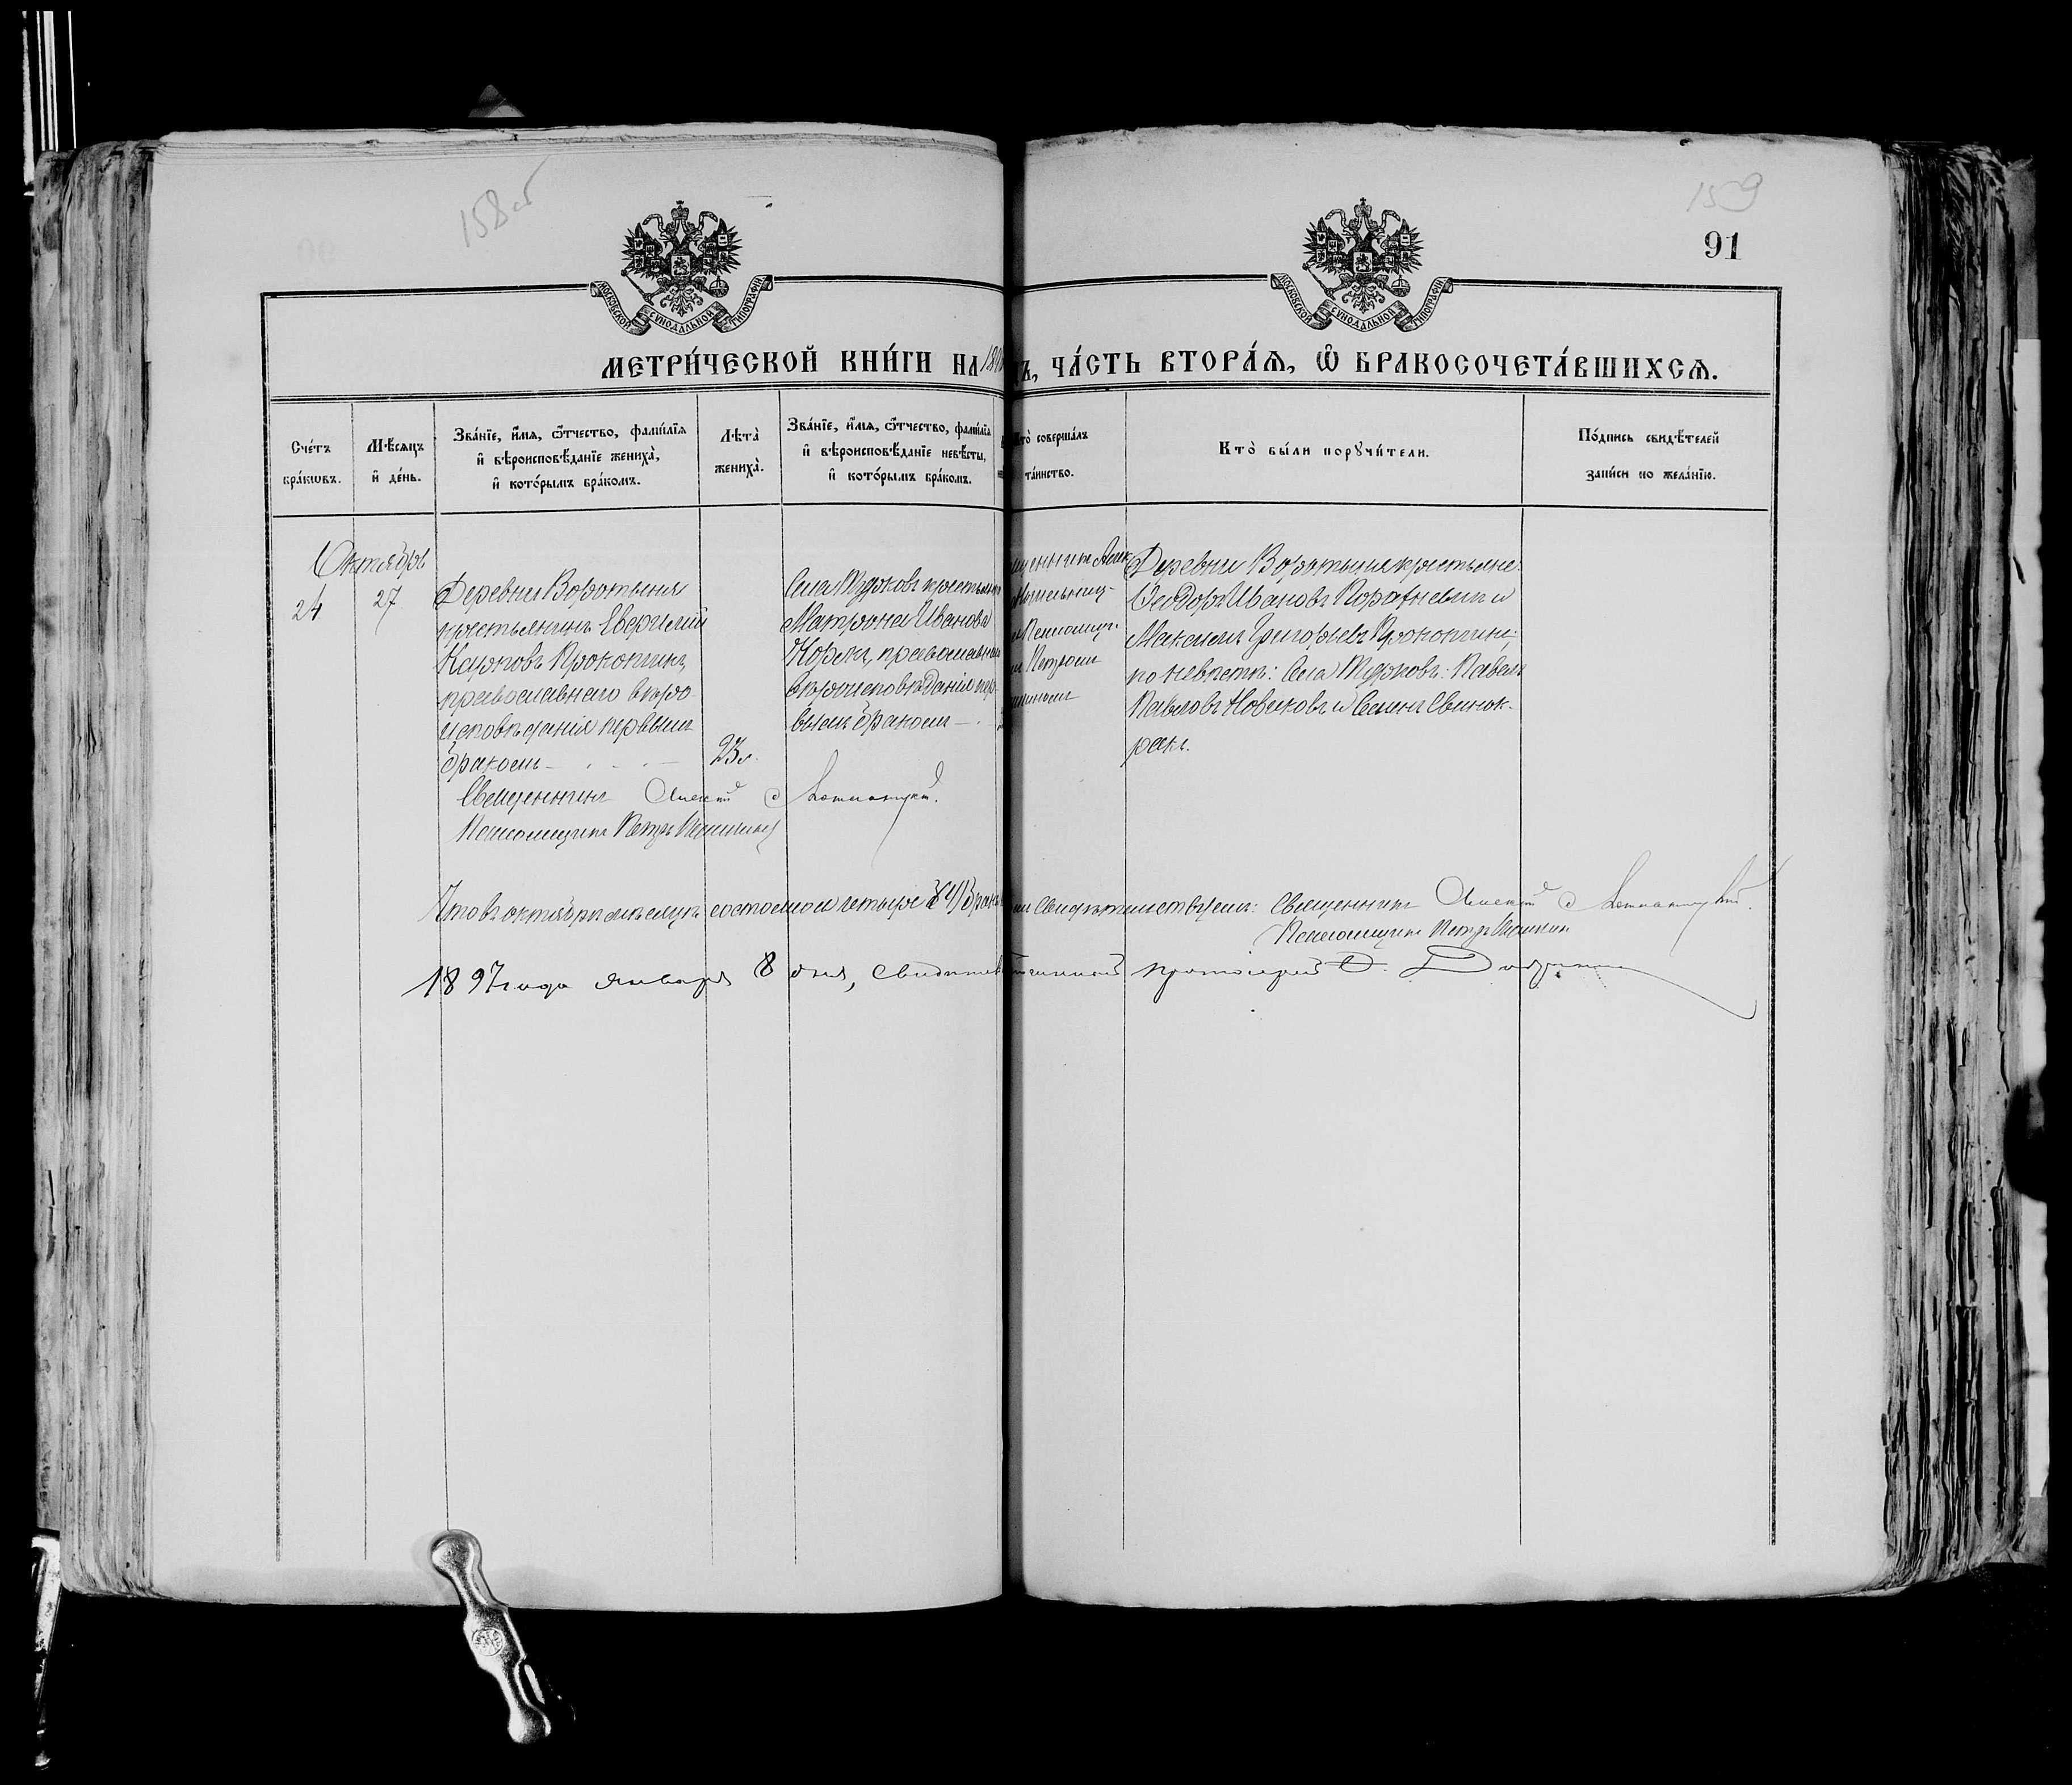 158 об
159
91
МОСКОВСКОЙ СѴНОДАЛЬНОЙ ТИПОГРАФІИ
МОСКОВСКОЙ СѴНОДАЛЬНОЙ ТИПОГРАФІИ
МЕТРИ́ЧЕСКОЙ КНИ́ГИ НА 189 Ъ, ЧА́СТЬ ВТОРА́Ѧ, Ѽ БРАКОСОЧЕТА́ВШИХСѦ.
Сче́тъ
бра́кѡвъ.
Мѣ́сяцъ
и҆ де́нь.
Зва́нїе, и҆́мѧ, ѻ҆́тчество, фами́лїѧ
и҆ вѣроисповѣ́данїе жениха̀,
и҆ кото́рымъ бра́комъ.
Лѣта̀
жениха̀.
Зва́нїе, и҆́мѧ, ѻ҆́тчество, фами́лїѧ
и҆ вѣроисповѣ́данїе невѣ́сты,
и҆ кото́рымъ бра́комъ.
Кто̀ соверша́лъ
та́инство.
Кто̀ бы́ли порꙋчи́тели.
По́дпись свидѣ́телей
за́писи по жела́нїю.
Октябрь
24
27
Деревни Воротыня
крестьянинъ Евергилий
Карповъ Прокопчикъ,
православнаго вѣро-
исповѣданія первымъ
бракомъ
23 г.
Села Турковъ крестьян
Матрона Иванова
православн
вѣроисповѣданія пер-
вымъ бракомъ
щенникъ Алек
Псаломщи-
Петромъ
Деревни Воротыня крестьяне:
Ѳеодоръ Ивановъ и
Максимъ Григорьевъ Прокопчики;
по невѣстѣ: Села Турковъ: Павелъ
Павловъ Новиковъ и Семенъ Свинок-
Священникъ Алексій
Псаломщикъ Петръ
Что въ октябрѣ мѣсяцѣ состоялось четыре (4) брак
свидѣтельствуемъ: Священникъ Алексій
Псаломщикъ Петръ
1897 года января 8 дня, свидѣтель протоіерей